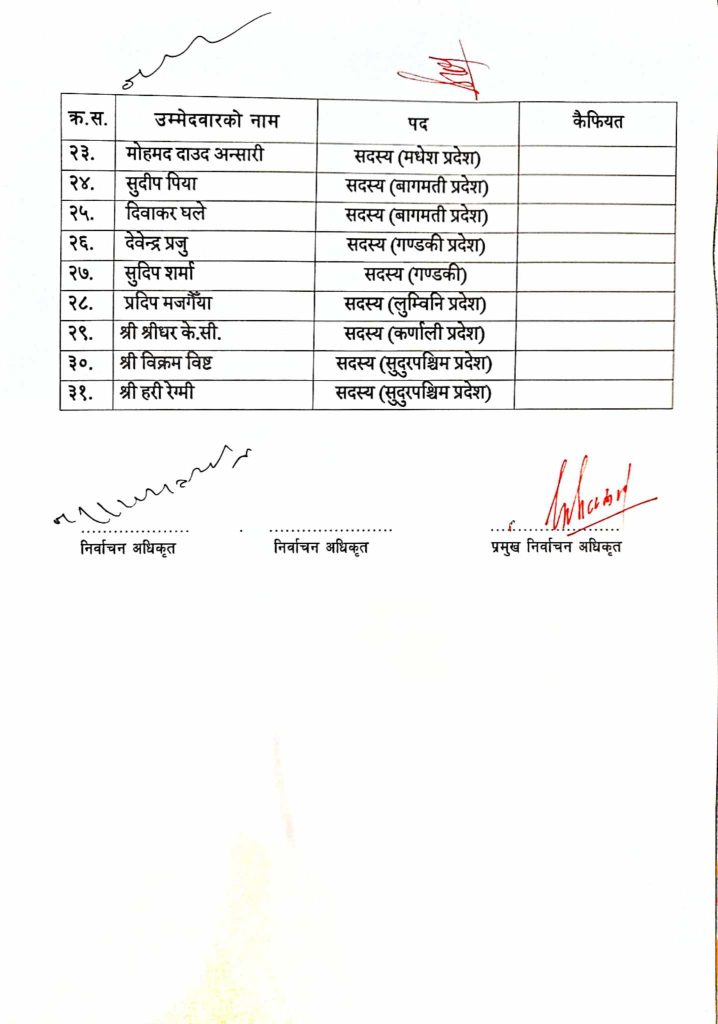 क्र.स. उम्मेदवारको नाम पद कैफियत
२३. मोहमद दाउद अन्सारी सदस्य (मधेश प्रदेश)
२४. सुदीप पिया सदस्य (बागमती प्रदेश)
२५. दिवाकर घले सदस्य (बागमती प्रदेश)
२६. देवेन्द्र प्रजु सदस्य (गण्डकी प्रदेश)
२७. सुदिप शर्मा सदस्य (गण्डकी)
२८. प्रदिप मजगैँया सदस्य (लुम्विनि प्रदेश)
२९. श्री श्रीधर के.सी. सदस्य (कर्णाली प्रदेश)
३०. श्री विक्रम विष्ट सदस्य (सुदुरपश्चिम प्रदेश)
३१. श्री हरी रेग्मी सदस्य (सुदुरपश्चिम प्रदेश)
निर्वाचन अधिकृत निर्वाचन अधिकृत प्रमुख निर्वाचन अधिकृत